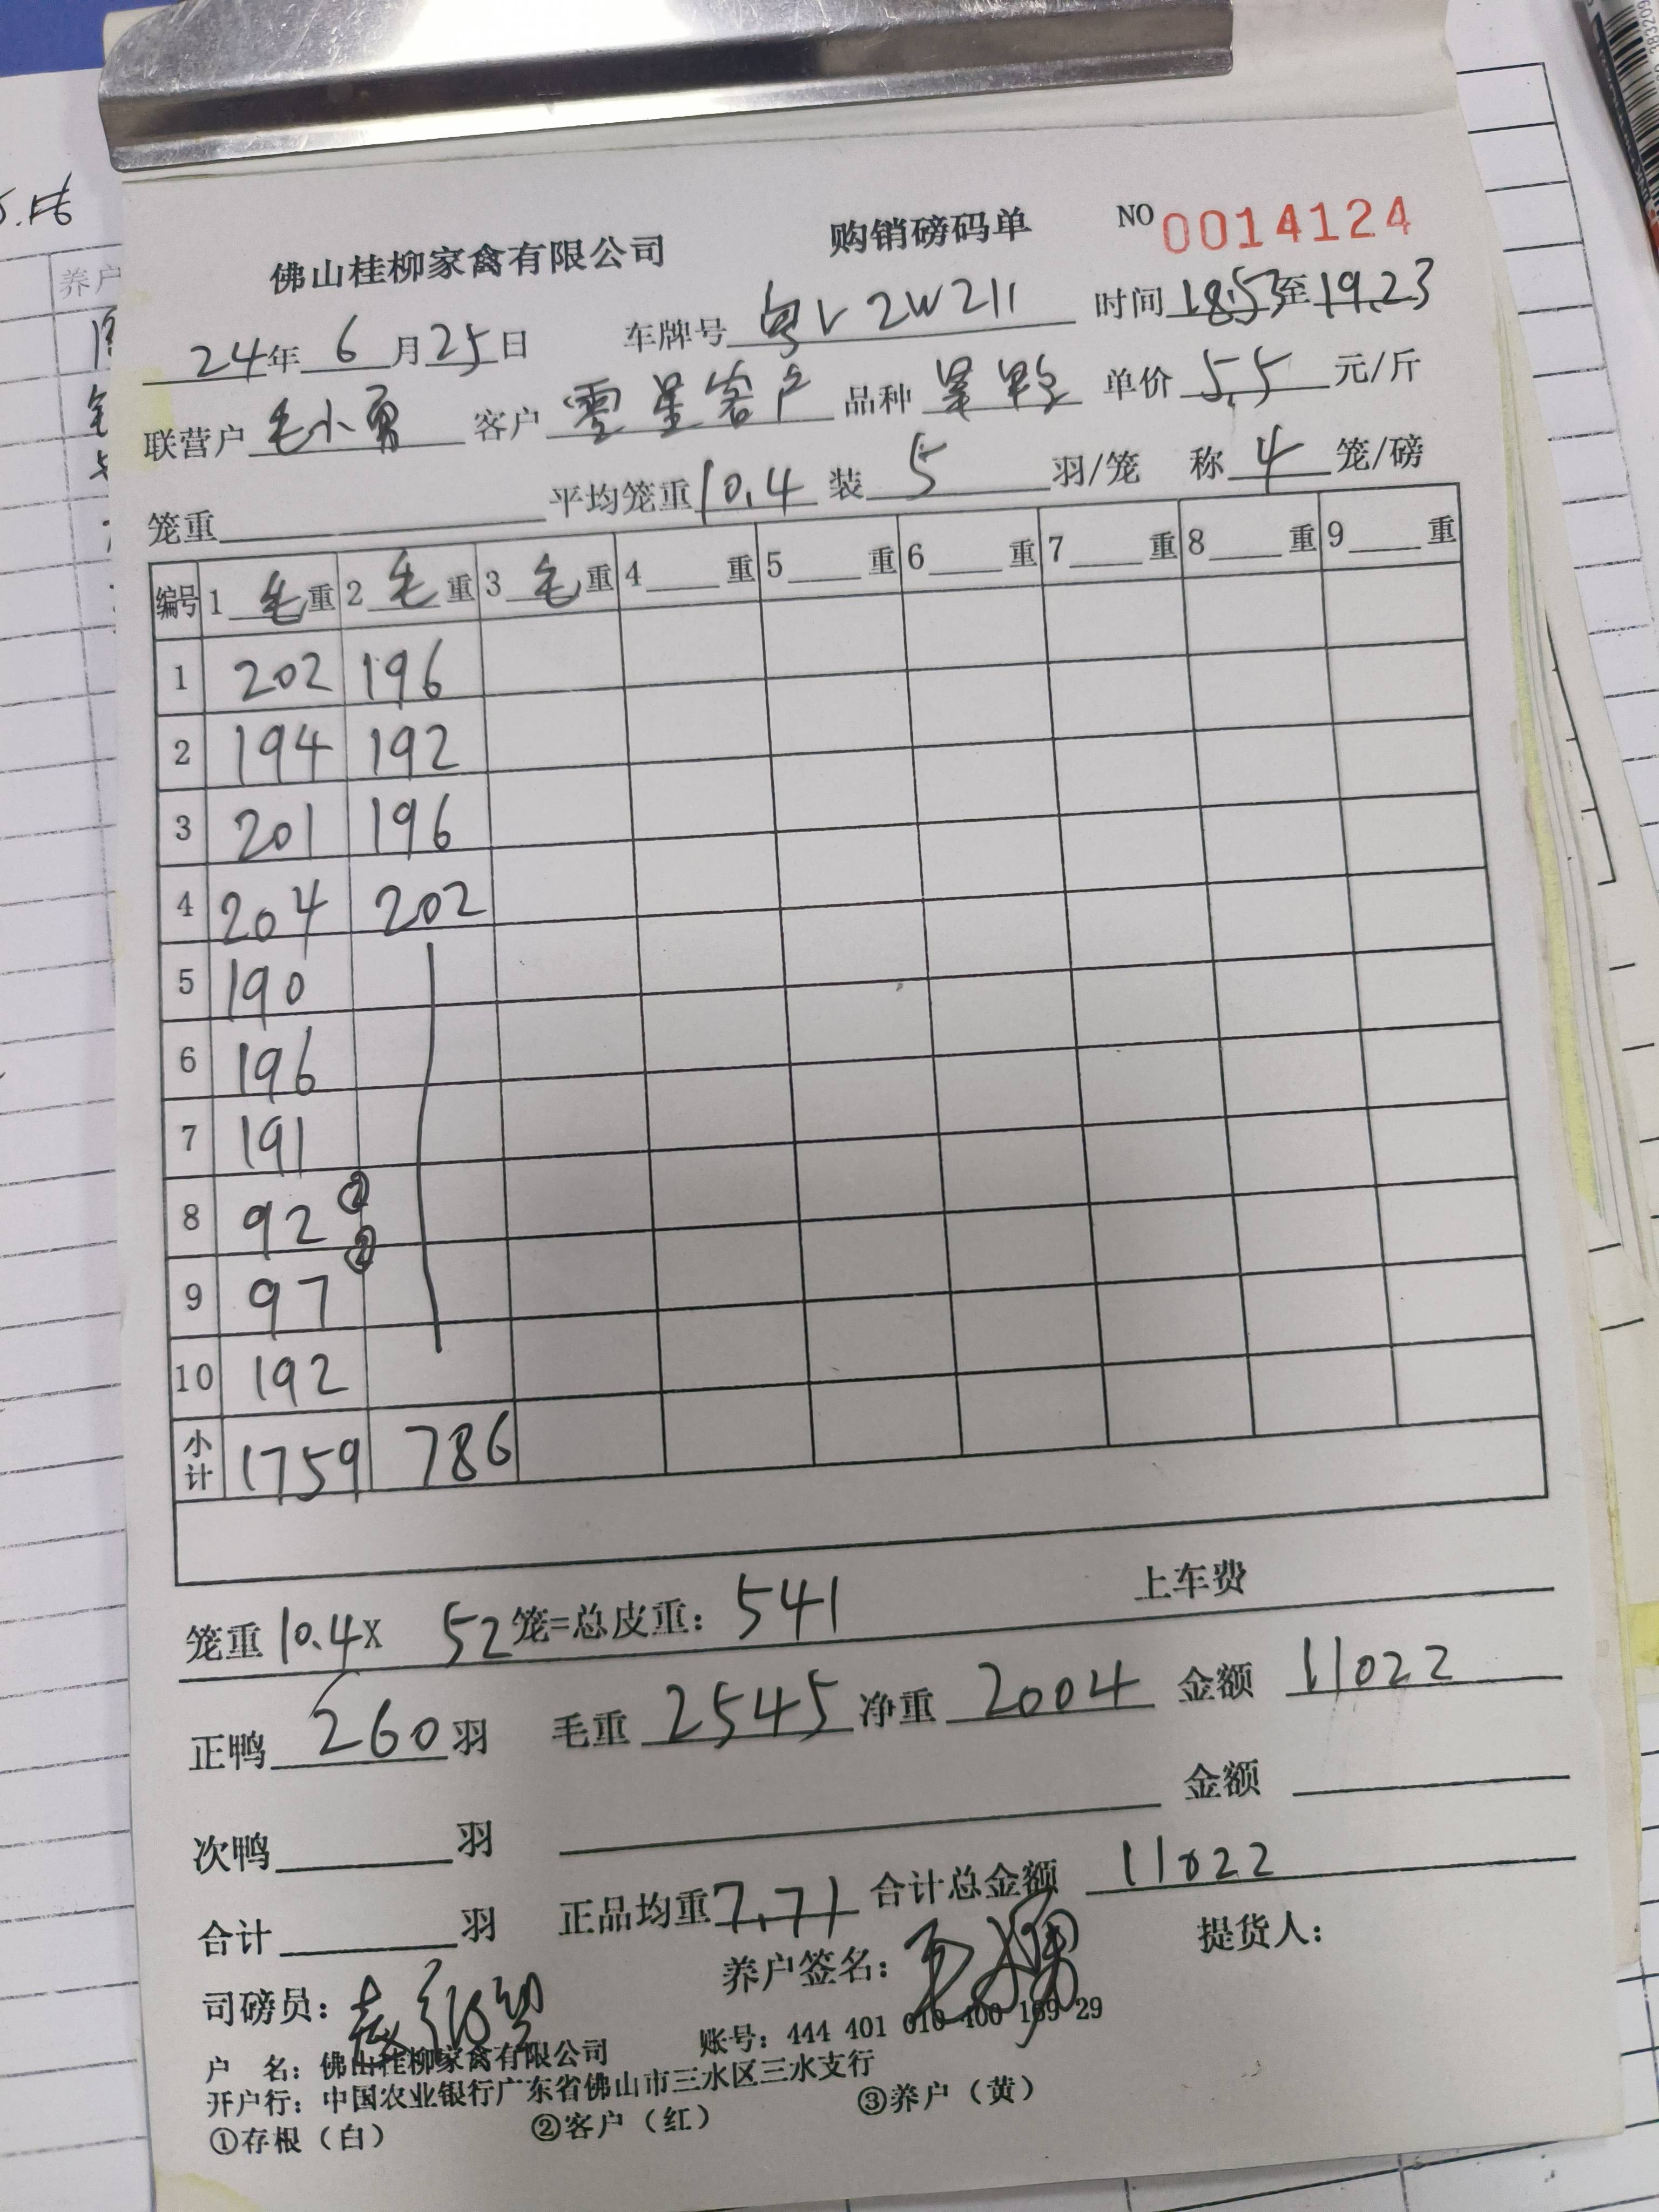 佛山桂柳家禽有限公司 购销磅码单 NO 0014124
24年 6月25日 车牌号 粤V 2W211 时间 18.53至19.23
联营户 毛小勇 客户 零星客户 品种 单价 5.5 元/斤
笼重 平均笼重10.4 装 5 羽/笼 称 4 笼/磅
编号 1 毛重 2 毛重 3 毛重 4 重 5 重 6 重 7 重 8 重 9 重
1 202 196
2 194 192
3 201 196
4 204 202
5 190
6 196
7 191
8 92 ②
9 97 ②
10 192
小计 1759 786
笼重 10.4X 52笼=总皮重: 541 上车费
正鸭 260羽 毛重 2545 净重 2004 金额 11022
次鸭 羽 金额
合计 羽 正品均重7.71 合计总金额 11022
司磅员: 养户签名: 提货人:
户 名: 佛山桂柳家禽有限公司 账号: 444 401 010 400 169 29
开户行: 中国农业银行广东省佛山市三水区三水支行
①存根（白） ②客户（红） ③养户（黄）
养户